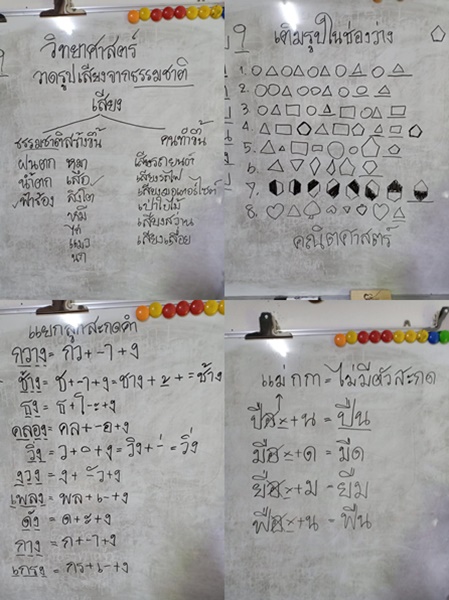 9
วิทยาศาสตร์
วาดรูปเสียงจากธรรมชาติ
เสียง
ธรรมชาติสร้างขึ้น คนทำขึ้น
ฝนตก หมา เสียงรถยนต์
น้ำตก เสือ เสียงรถไฟ
ฟ้าร้อง ลิงโต เสียงมอเตอร์ไซต์
หมู เป่าใบไม้
ไก่ เสียงสว่าน
แมว เสียงเลื่อย
นก
9 เติมรูปในช่องว่าง
1.
2.
3.
4.
5.
6.
7.
8.
คณิตศาสตร์
แยกลูกสะกดคำ
กวาง = กว+-า+ง
ช้าง = ช+-า+ง=ชาง+-้=ช้าง
ธง = ธ+โ-ะ+ง
คลอง = คล+-อ+ง
วิ่ง = ว+-ิ+ง=วิง+-่=วิ่ง
งวง = ง+-ัว+ง
เพลง = พล+เ-+ง
ดัง = ด+-ะ+ง
กาง = ก+-า+ง
เกรง = กร+เ-+ง
แม่ ก กา = ไม่มีตัวสะกด
ปือ×+น = ปืน
มือ×+ด = มืด
ยือ×+ม = ยืม
ฟือ×+น = ฟืน